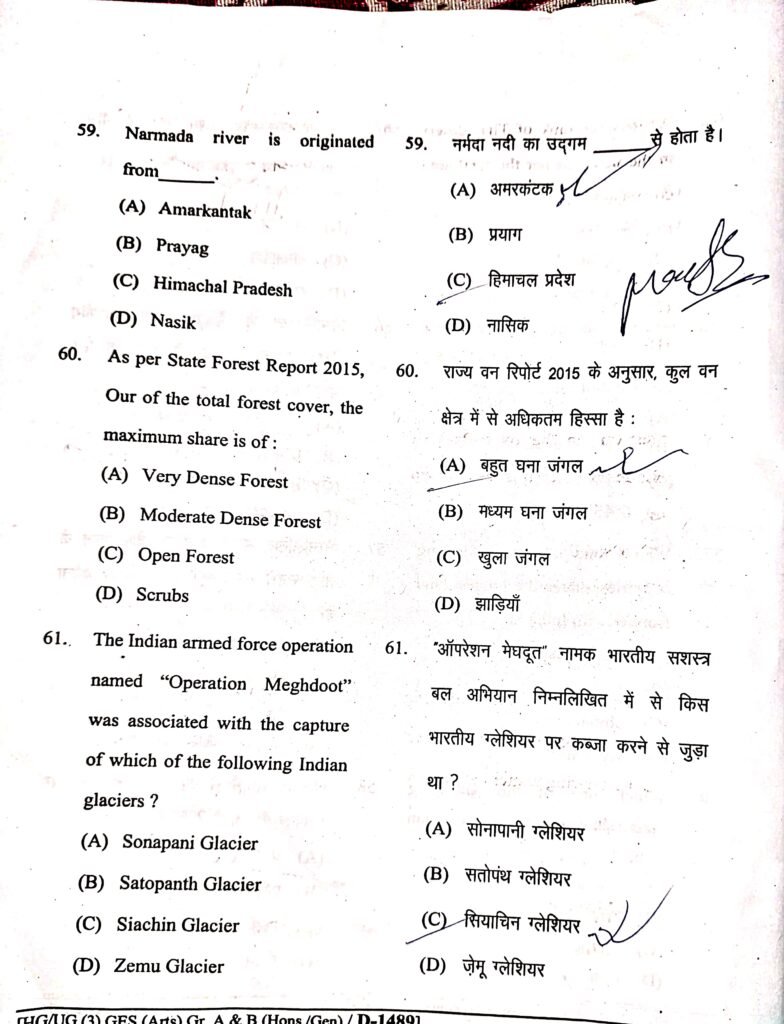 59. Narmada river is originated
from______.
(A) Amarkantak
(B) Prayag
(C) Himachal Pradesh
(D) Nasik
60. As per State Forest Report 2015,
Our of the total forest cover, the
maximum share is of :
(A) Very Dense Forest
(B) Moderate Dense Forest
(C) Open Forest
(D) Scrubs
61. The Indian armed force operation
named “Operation Meghdoot”
was associated with the capture
of which of the following Indian
glaciers ?
(A) Sonapani Glacier
(B) Satopanth Glacier
(C) Siachin Glacier
(D) Zemu Glacier
59. नर्मदा नदी का उद्गम ______से होता है।
(A) अमरकंटक
(B) प्रयाग
(C) हिमाचल प्रदेश
(D) नासिक
60. राज्य वन रिपोर्ट 2015 के अनुसार, कुल वन
क्षेत्र में से अधिकतम हिस्सा है :
(A) बहुत घना जंगल
(B) मध्यम घना जंगल
(C) खुला जंगल
(D) झाड़ियाँ
61. "ऑपरेशन मेघदूत" नामक भारतीय सशस्त्र
बल अभियान निम्नलिखित में से किस
भारतीय ग्लेशियर पर कब्जा करने से जुड़ा
था ?
(A) सोनापानी ग्लेशियर
(B) सतोपंथ ग्लेशियर
(C) सियाचिन ग्लेशियर
(D) ज़ेमू ग्लेशियर
[HG/UG (3) GES (Arts) Gr. A & B (Hons./Gen) / D-1489]